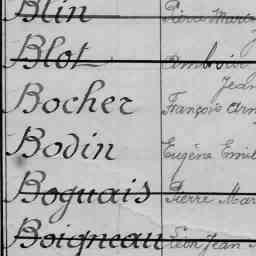 Blin Pierre Marie
Blot Ambroise
Jean
Bocher François
Bodin Eugène Emil
Boguais Pierre Mar
Boigneau Léon Jean